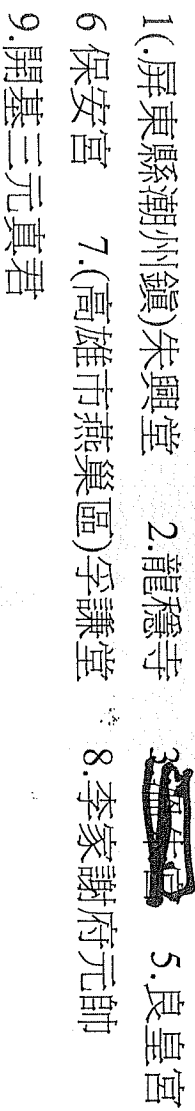 1(.屏東縣潮州鎮)朱興堂 2.龍穩寺 3. 5.良皇宮
6 保安宮 7.(高雄市燕巢區)孚謙堂 8.李家謝府元帥
9.開基三元真君